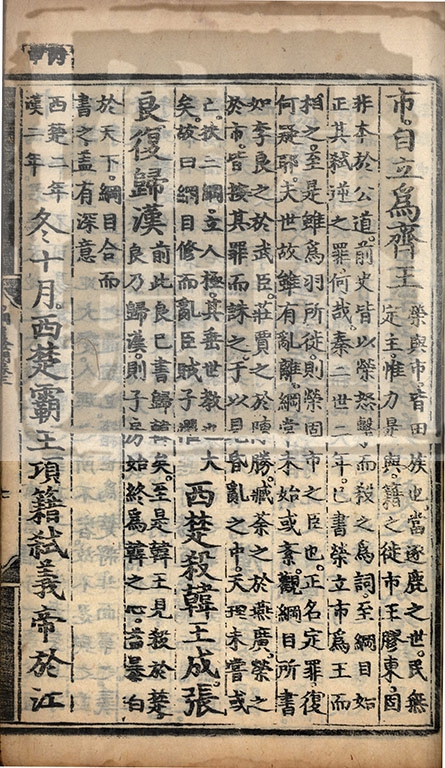 市。自立爲齊王
榮與市皆田族也。當逐鹿之世。民無
定主。惟力是與。籍之徙市王膠東。固
非本於公道。前史皆以榮怒擊而殺之爲詞。至綱目始
正其弑逆之罪。何哉。秦二世二年。已書榮立市爲王而
相之。至是雖爲羽所徙。則榮固市之臣也。正名定罪。復
何疑耶。夫世故雖有亂離。綱常未始或紊。觀綱目所書
如李良之於武臣。莊賈之於陳勝。臧荼之於燕廣。榮之
於市。皆按其罪而誅之。于以見昏亂之中。天理未嘗或
亡。扶三綱。立人極。其垂世教也大
矣。故曰綱目修而亂臣賊子懼
西楚殺韓王成。張
良復歸漢
前此良已書歸韓矣。至是韓王見殺於楚。
良乃歸漢。則子房始終爲韓之心。益暴白
於天下。綱目合而
書之。盖有深意
西楚二年
漢二年
冬十月。西楚霸王項籍弑義帝於江